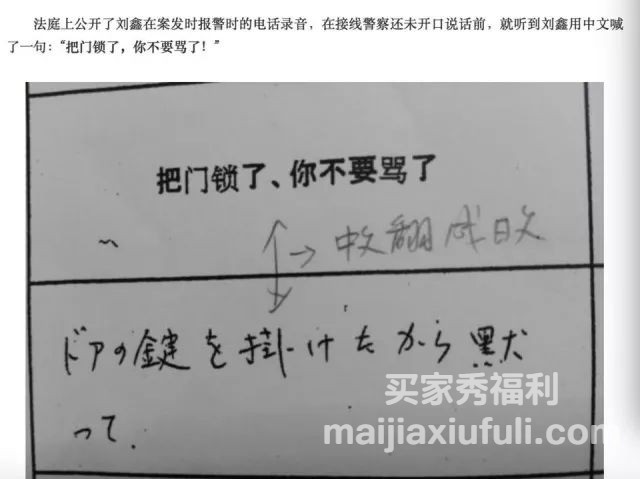 法庭上公开了刘鑫在案发时报警时的电话录音，在接线警察还未开口说话前，就听到刘鑫用中文喊
了一句：“把门锁了，你不要骂了！”
把门锁了、你不要骂了
中文翻成日文
ドアの鍵を掛けたから黙
って.
买家秀福利
maijiaxiufuli.com